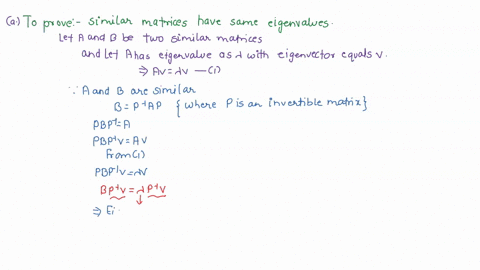 (a) To prove:- similar matrices have same eigenvalues.
Let A and B be two similar matrices
and Let A has eigenvalue as λ with eigenvector equals v.
⇒ Av = λv — (1)
∵ A and B are similar
B = P⁻¹AP { where P is an invertible matrix }
PBP⁻¹ = A
PBP⁻¹v = Av
from (1)
PBP⁻¹v = λv
BP⁻¹v = λ P⁻¹v
⇒ Ei